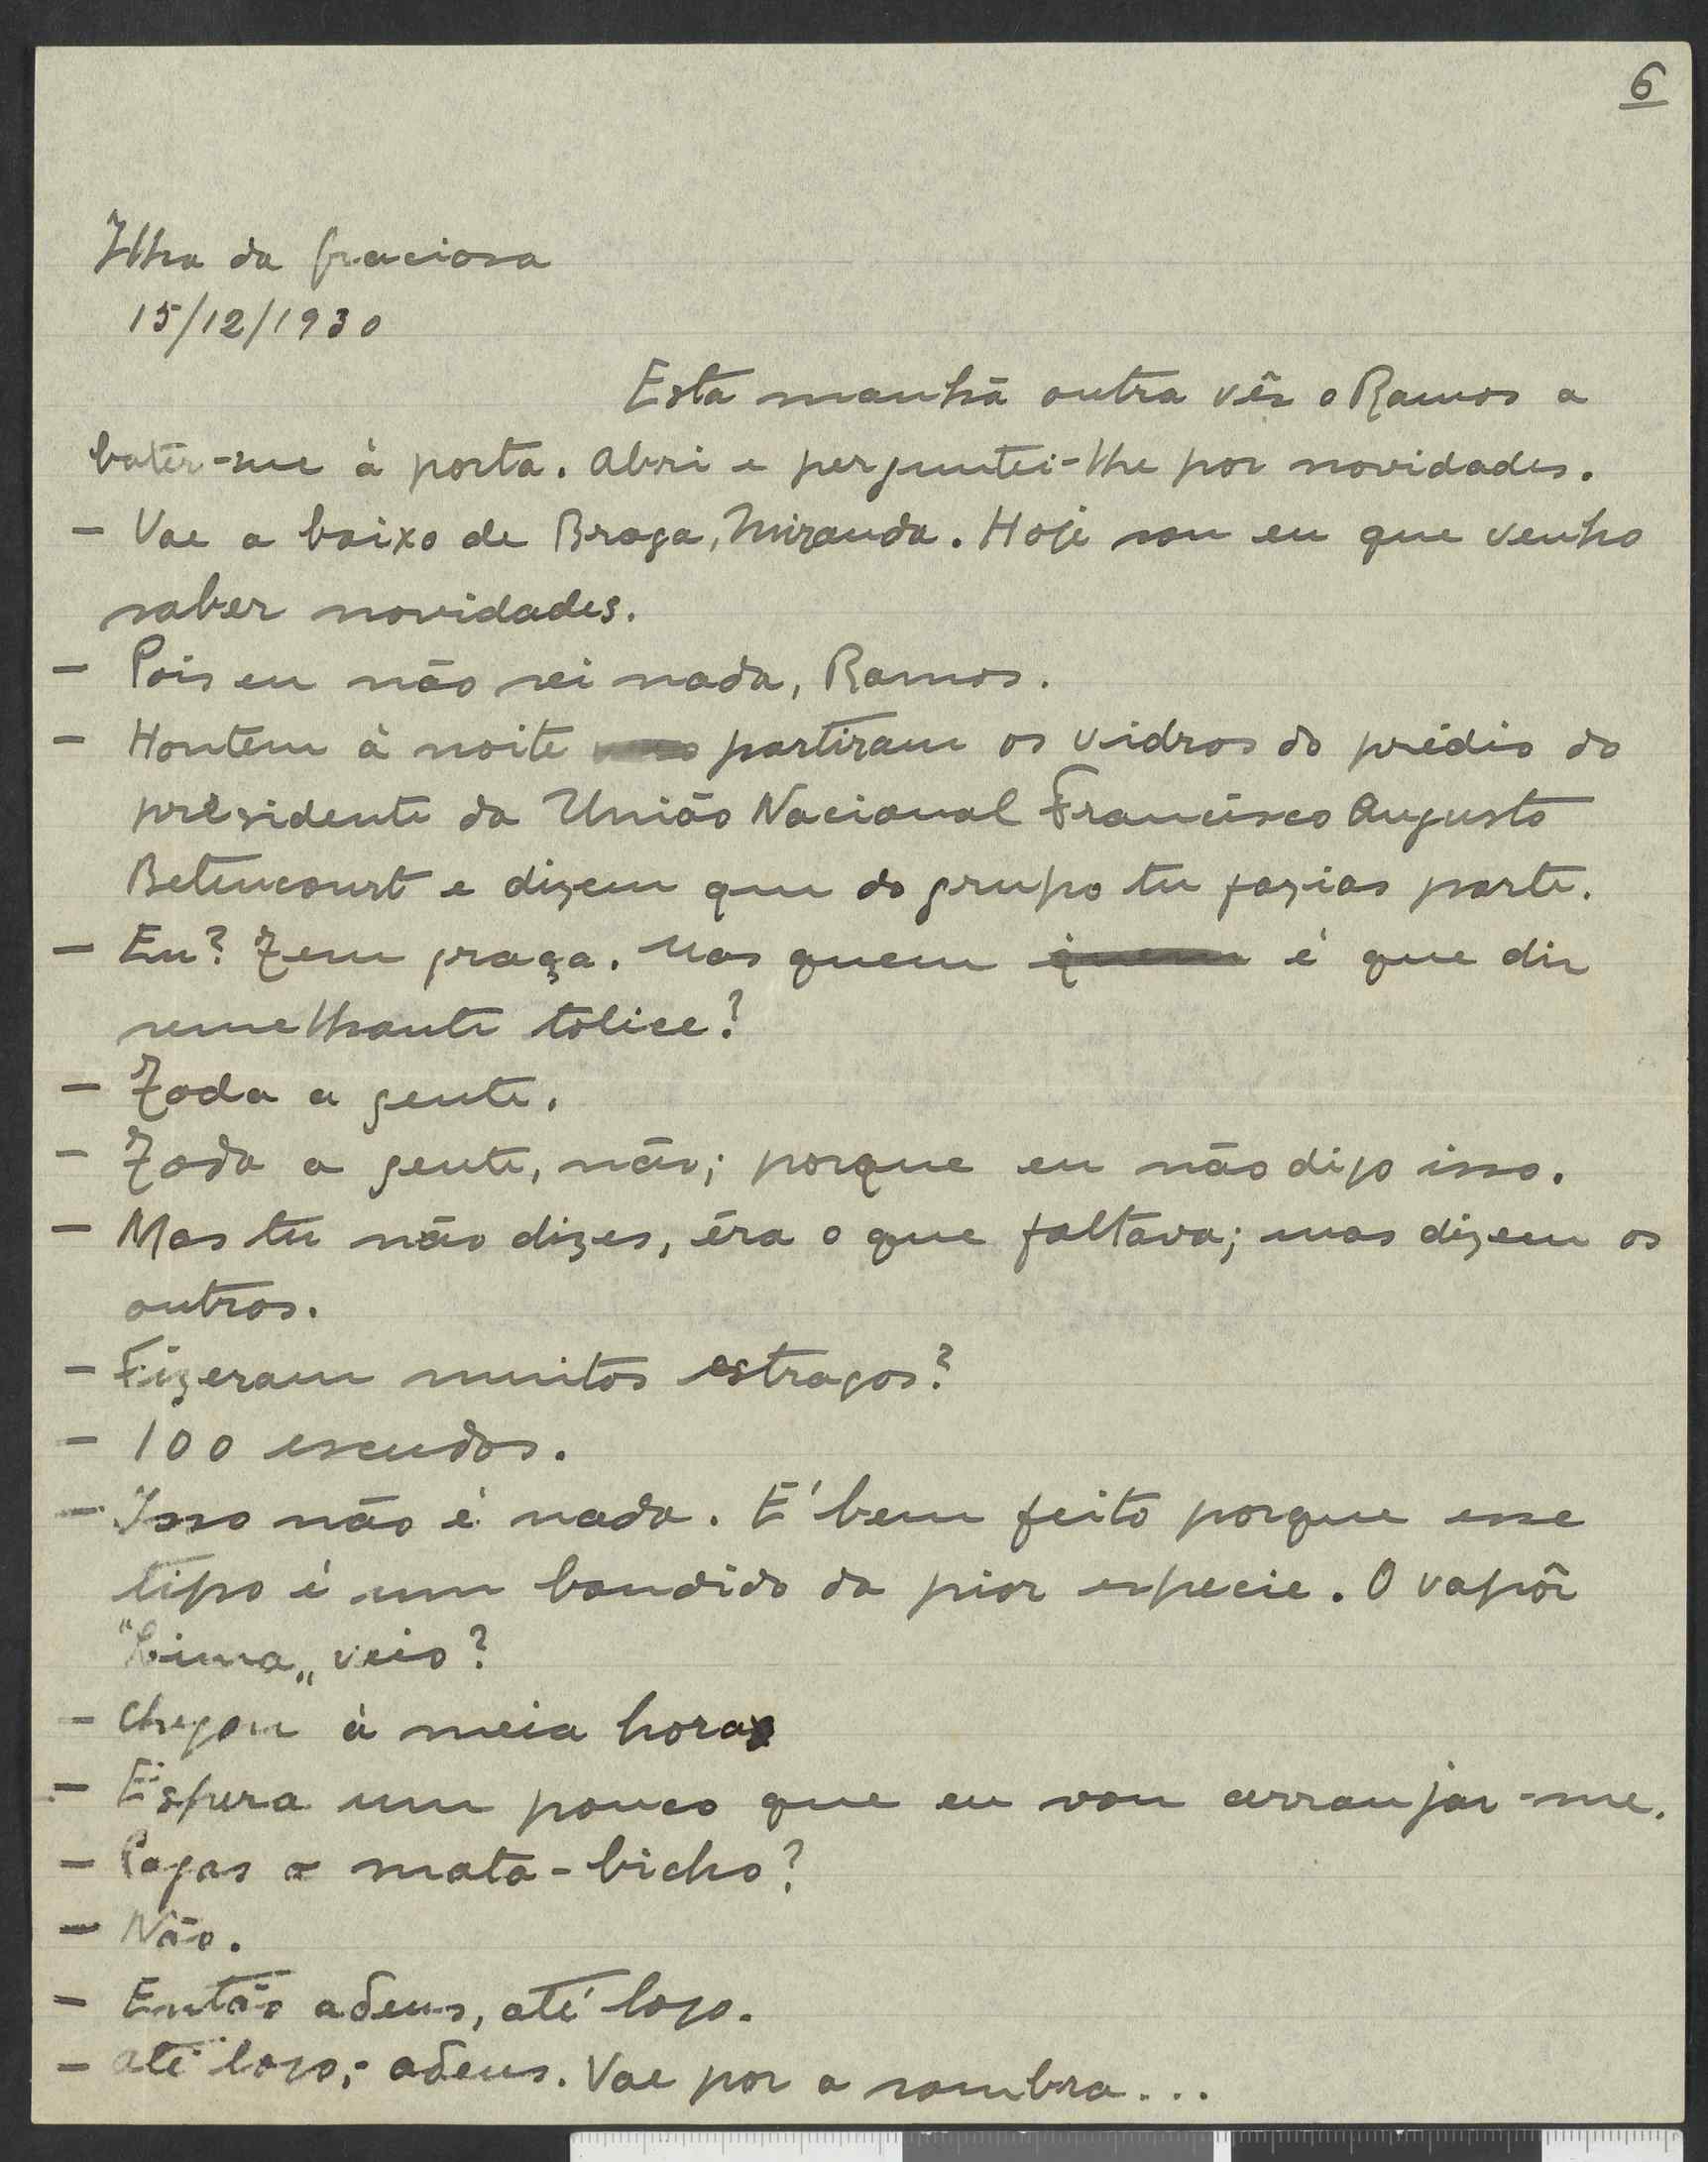 6
Ilha da Graciosa
15/12/1930
Esta manhã outra vês o Ramos a
batêr-me à porta. Abri e perguntei-lhe por novidades.
— Vae a baixo de Braga, Miranda. Hoje sou eu que venho
saber novidades.
— Pois eu não sei nada, Ramos.
— Hontem à noite partiram os vidros do prédio do
presidente da União Nacional Francisco Augusto
Betencourt e dizem que do grupo tu fazias parte.
— Eu? Tem graça. Mas quem quem é que diz
semelhante tolice?
— Toda a gente.
— Toda a gente, não; porque eu não digo isso.
— Mas tu não dizes, éra o que faltava; mas dizem os
outros.
— Fizeram muitos estragos?
— 100 escudos.
— Isso não é nada. E' bem feito porque esse
tipo é um bandido da pior especie. O vapôr
"Lima„ veio?
— Chegou à meia hora
— Espera um pouco que eu vou arranjar-me.
— Pagas o mata-bicho?
— Não.
— Então adeus, até logo.
— Até logo, adeus. Vae por a sombra...